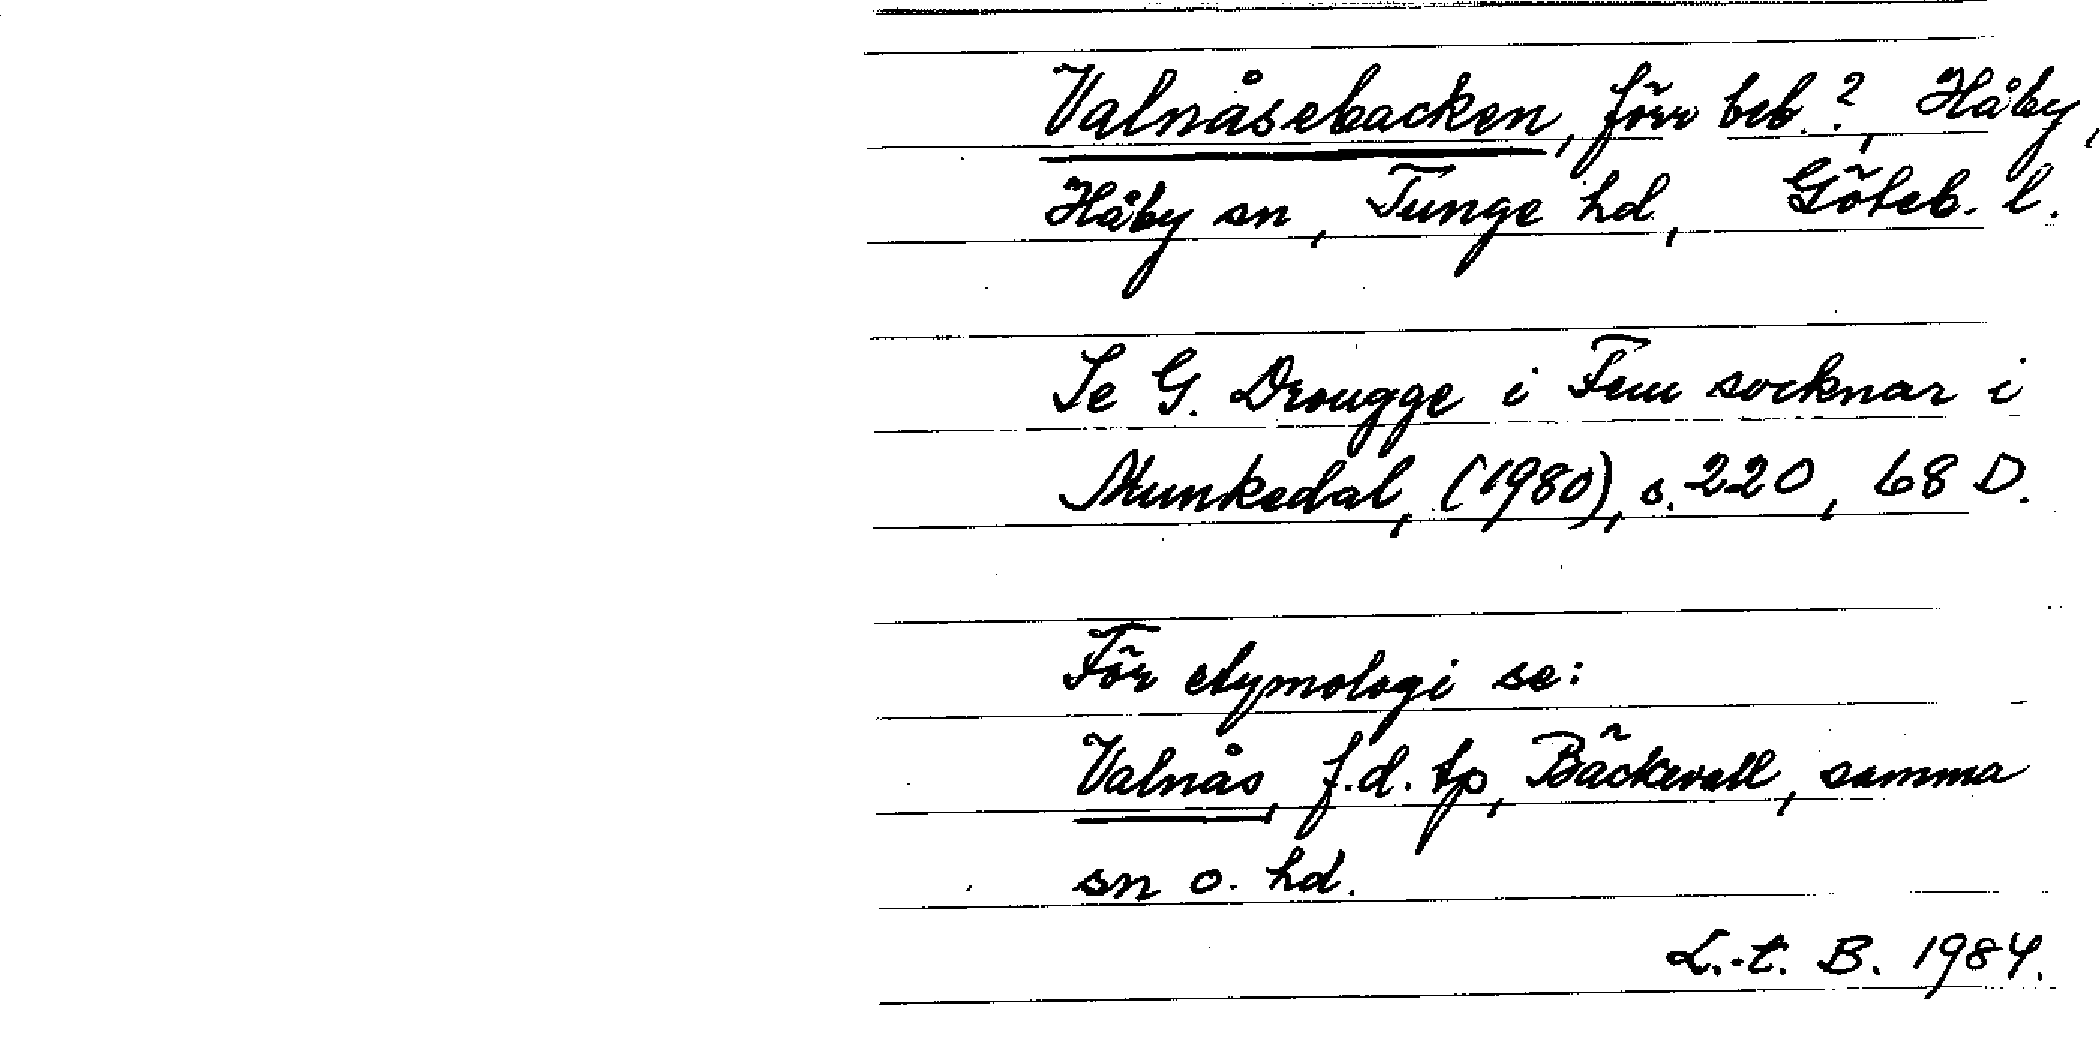 Valnåsebacken, förr beb.?, Håby,
Håby sn, Tunge hd, Göteb. l.
Se G. Drougge i Fem socknar i
Munkedal, (1980), s. 220, 68 D.
För etymologi se:
Valnås, f.d. tp, Bäckevall, samma
sn o. hd.
L.-t. B. 1984.